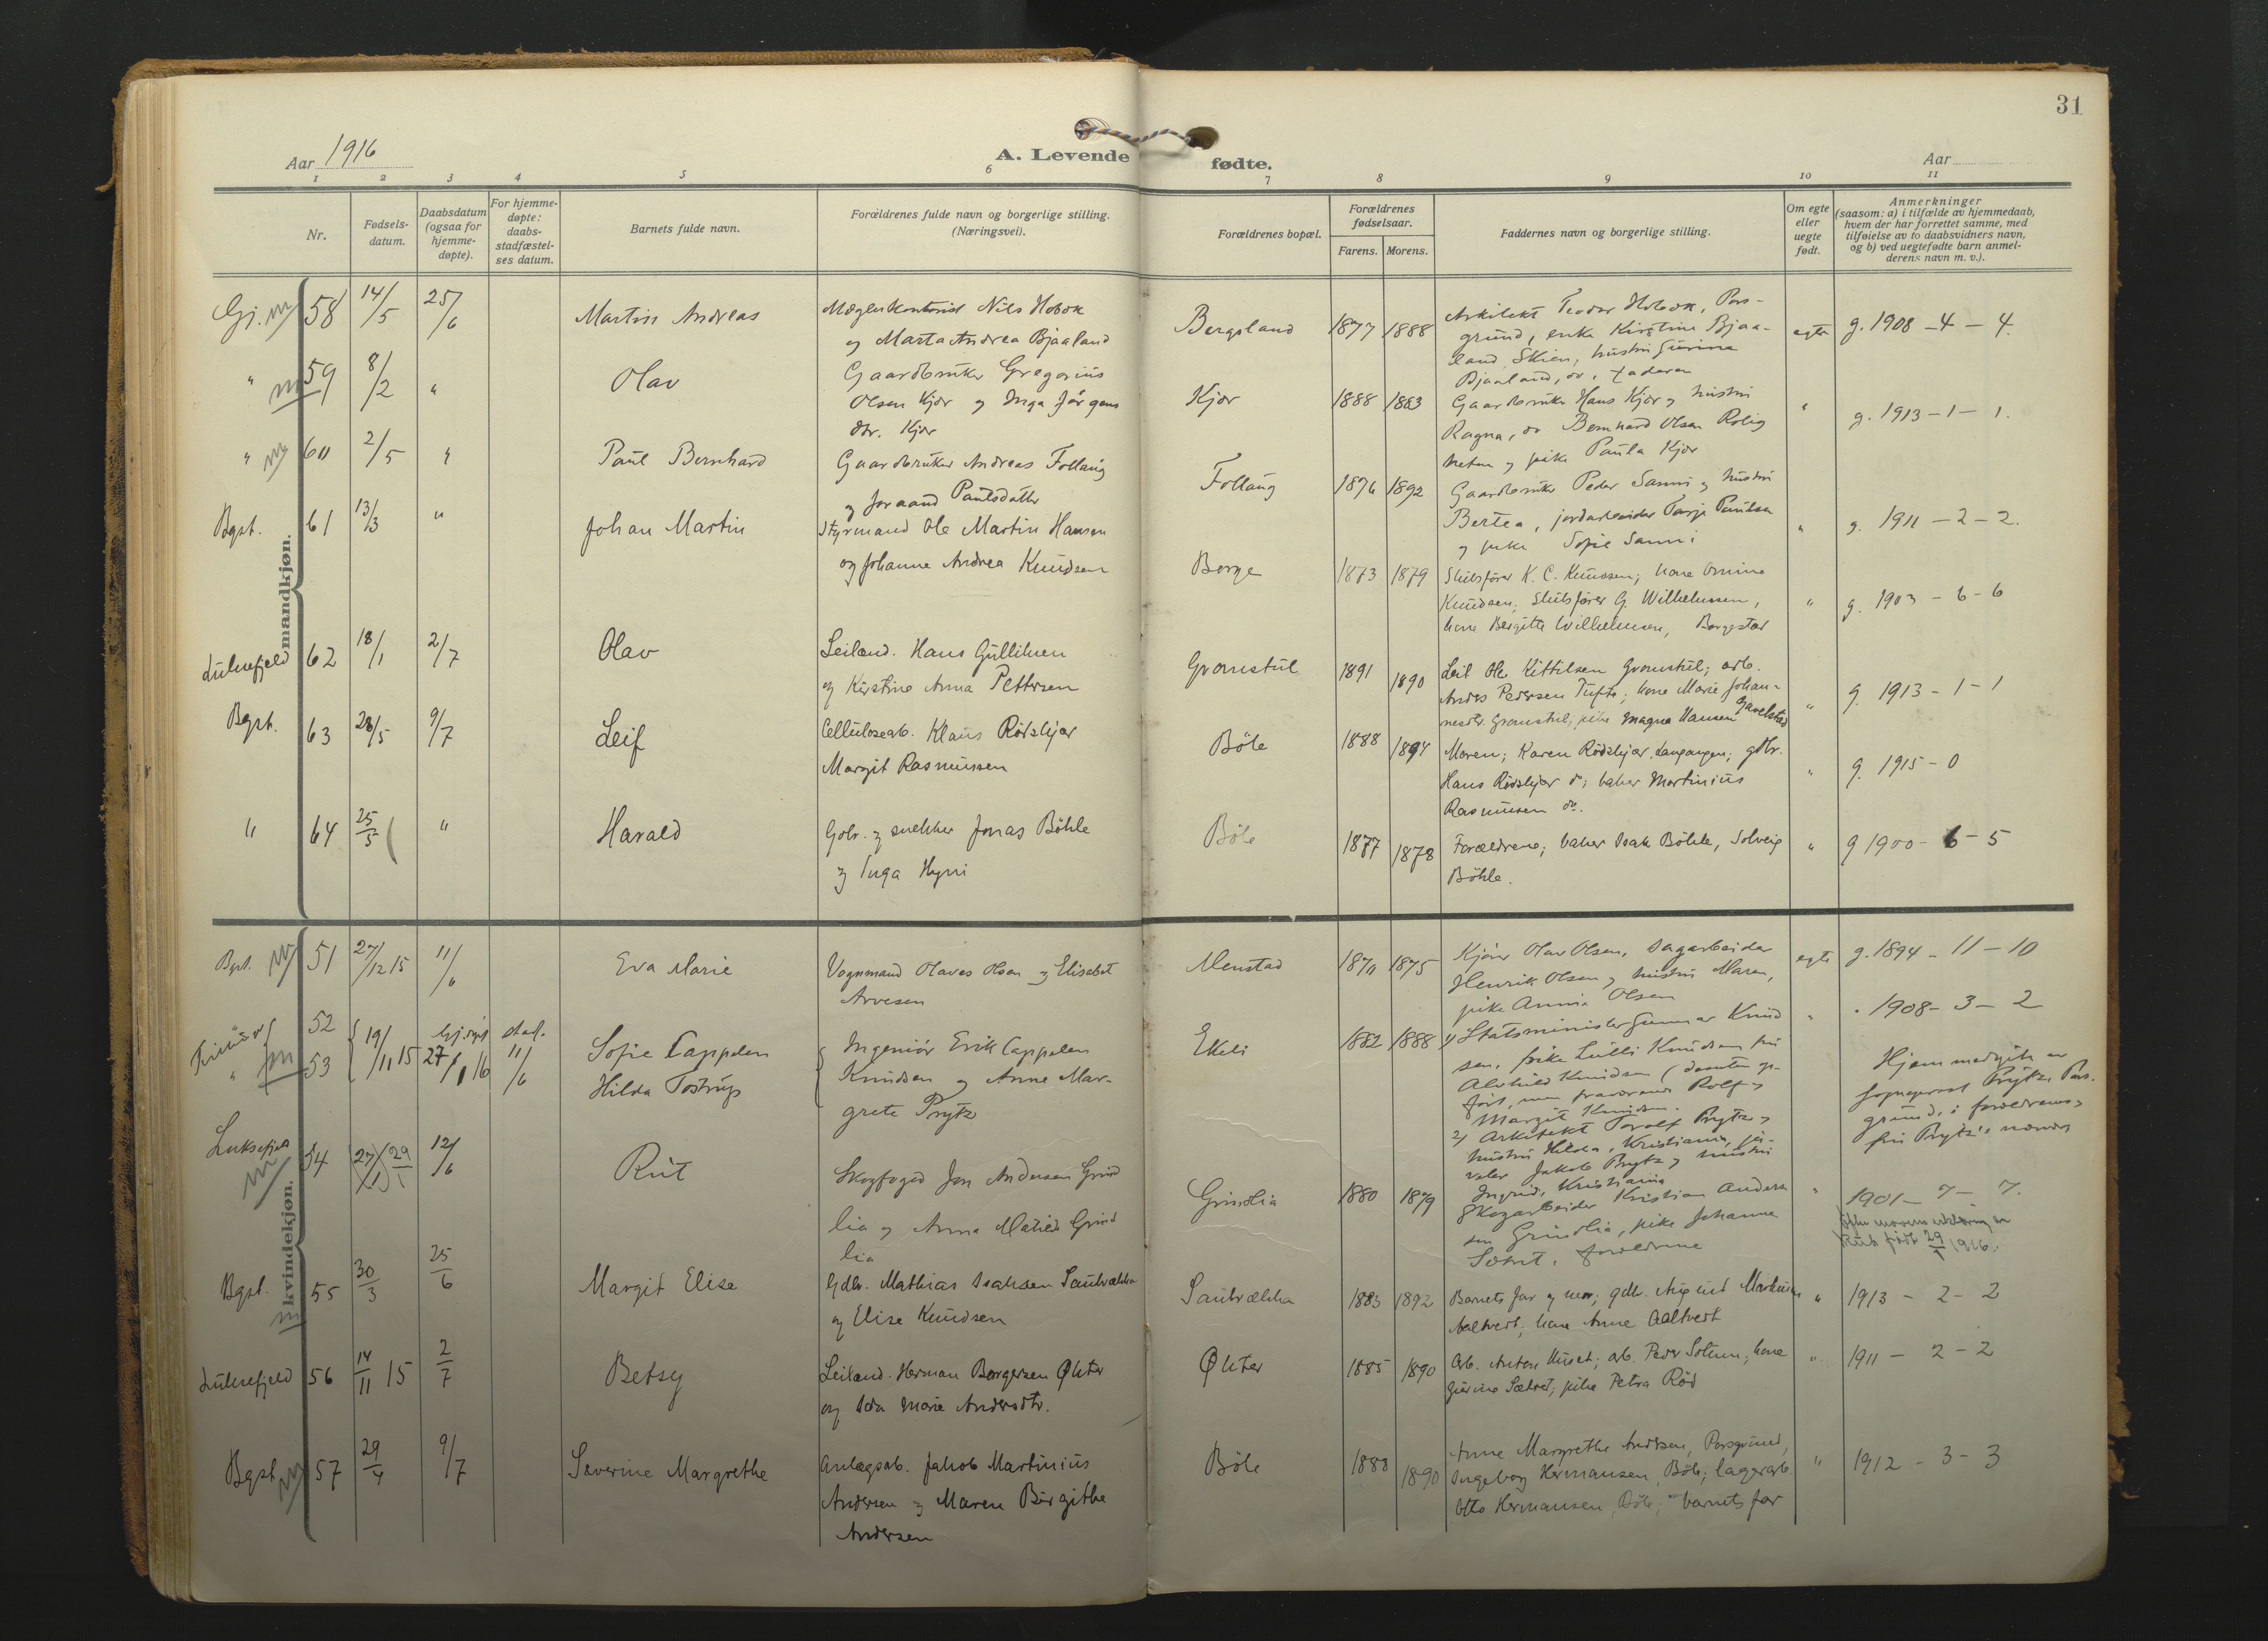 31
Aar 1916
A. Levende fødte.
Aar
1 2 3 4 5 6 7 8 9 10 11
Nr.
Fødsels-
datum.
Daabsdatum
(ogsaa for
hjemme-
døpte).
For hjemme-
døpte:
daabs-
stadfæstel-
ses datum.
Barnets fulde navn.
Forældrenes fulde navn og borgerlige stilling.
(Næringsvei).
Forældrenes bopæl.
Forældrenes
fødselsaar.
Farens. Morens.
Faddernes navn og borgerlige stilling.
Om egte
eller
uegte
født.
Anmerkninger
(saasom: a) i tilfælde av hjemmedaab,
hvem der har forrettet samme, med
tilføielse av to daabsvidners navn,
og b) ved uegtefødte barn anmel-
derens navn m. v.).
mandkjøn.
Gj. 58 14/5 25/6 Martin Andreas
Nils Hobæk
og Marta Andrea Bjaaland
Bergsland 1877 1888
Arkitekt Teodor Hobæk, Pors-
grund, enke Kirstine Bjaa-
land, Skien, hustru Gurine
Bjaaland, do, faderen
egte g. 1908 - 4 - 4.
" 59 8/2 " Olav
Gaardbruker Gregorius
Olsen Kjær og Inga Jørgens
dtr. Kjær
Kjær 1888 1883
Gaardbruker Hans Kjær og hustru
Ragna, do Bernhard Olsen Rolig
heten og pike Paula Kjær
" g. 1913 - 1 - 1.
" 60 2/5 " Paul Bernhard
Gaardbruker Andreas Follaug
og Joraand Paulsdatter
Follaug 1876 1892
Gaardbruker Peder Sanni og hustru
Bertea, jordarbeider Tarje Paulsen
og pike Sofie Sanni
" g. 1911 - 2 - 2.
Bgst. 61 13/3 " Johan Martin
Styrmand Ole Martin Hansen
og Johanne Andrea Knudsen
Borge 1873 1879
Skibsfører K. C. Knudsen; kone
Knudsen; Skibsfører G. Wilhelmsen,
kone Bergitte Wilhelmsen, Borgestad
" g. 1903 - 6 - 6
Luksefjeld 62 18/1 2/7 Olav
Leiland. Hans Gulliksen
og Kirstine Anna Pettersen
Gromstul 1891 1890
Leil Ole Kittilsen Gromstul; arb.
Anders Pedersen Tufte; kone Marie Johan-
nesdtr. Gromstul, pike Magna Hansen Gavelstad
" g. 1913 - 1 - 1
Bgst. 63 28/5 9/7 Leif
Cellulosearb. Klaus Rødskjær
Margit Rasmussen
Böle 1888 1894
Moren; Karen Rødskjær, Langangen; gdbr.
Hans Rødskjær do; baker Martinius
Rasmussen do.
" g. 1915 - 0
" 64 25/5 " Harald
Gbr. og snekker Jonas Böhle
og Inga Hyni
Böle 1877 1878
Forældrene; baker Isak Böhle, Solveig
Böhle.
" g 1900 - 6 - 5
kvindekjøn.
Bgst. 51 27/12 15 11/6 Eva Marie
Vognmand Olaves Olsen og Elisabet
Arvesen
Menstad 1870 1875
Kjører Olav Olsen, Sagarbeider
Henrik Olsen og hustru Maren,
pike Annie Olsen
egte g. 1894 - 11 - 10
52
53 19/11 15 27/1 16 stadf. 11/6
Sofie Cappelen
Hilda Tostrup
Ingeniør Erik Cappelen
Knudsen og Anne Mar-
grete Prytz
Ekeli 1882 1888
1) Statsminister Gunnar Knud
sen, frøken Lulli Knudsen
Alvhild Knudsen
Rolf og
Margit Knudsen.
2) Arkitekt Torolf Prytz og
hustru Hilda, Kristiania, ju-
veler Jakob Prytz og hustru
Ingrid, Kristiania
" 1908 - 3 - 2
Hjemmedøpte av
sogneprest Prytz, Pors-
grund, i forældrenes og
fru Prytz's nærvær
Luksefjeld 54 29/1 12/6 Rut
Skogfoged Jon Andersen Grind
lia og Anna Matilde Grind
lia
Grindlia 1880 1879
Skogarbeider Kristian Ander
sen Grindlia, pike Johanna
Sætret, forældrene
" 1901 - 7 - 7.
Efter morens erklæring er
Rut født 29/1 1916.
Bgst. 55 30/3 25/6 Margit Elise
Gdbr. Mathias Isaksen Saubrækka
og Elise Knudsen
Saubrækka 1883 1892
Barnets far og mor; gdbr. Markussen
Aaltvedt, kone Anne Aaltvedt
" 1913 - 2 - 2
Luksefjeld 56 14/11 15 2/7 Betsy
Leiland. Herman Borgersen Økter
og Ida Marie Andersdtr.
Økter 1885 1890
Arb. Anton Huset; arb. Peder Solum; kone
Gurine Sætret, pike Petra Rød
" 1911 - 2 - 2
Bgst 57 29/4 9/7 Severine Margrethe
Anlægsarb. Jakob Martinius
Andersen og Maren Birgithe
Andersen
Böle 1888 1890
Anne Margrethe Andersen, Porsgrund,
Ingeborg Hermansen, Böle; lagerarb.
Otto Hermansen, Böle; barnets far
" 1912 - 3 - 3